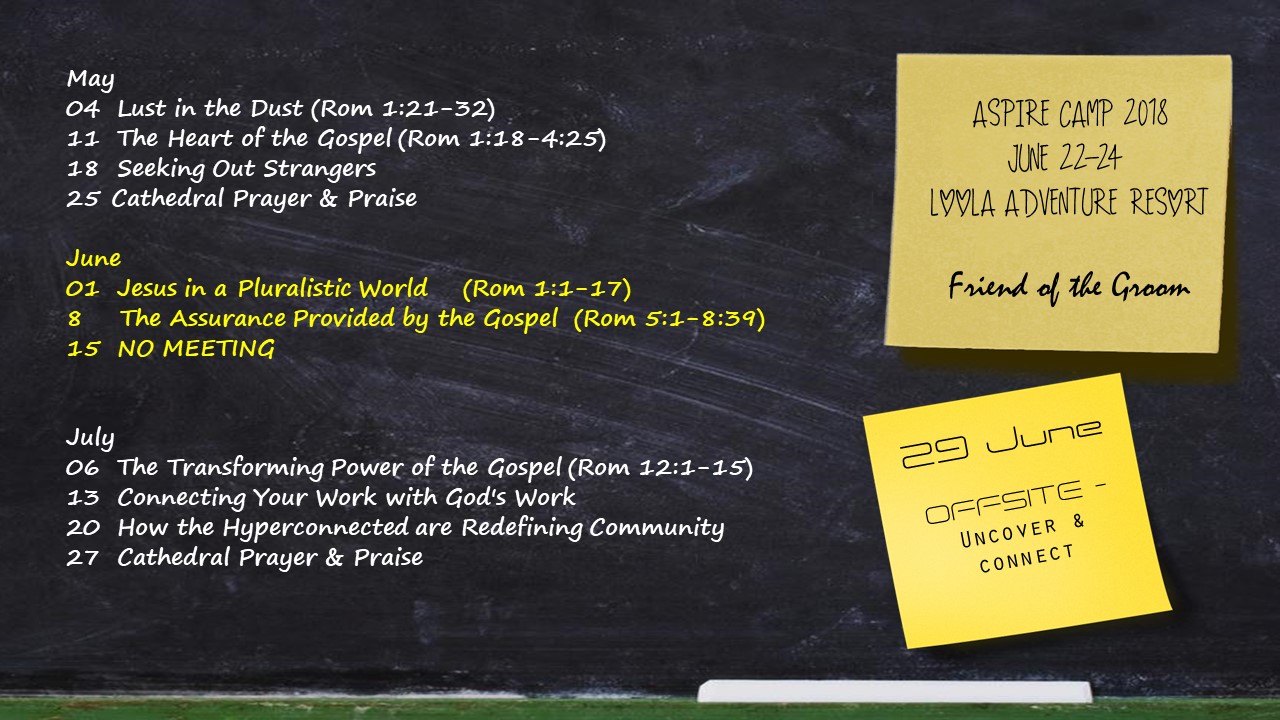 May
04 Lust in the Dust (Rom 1:21-32)
11 The Heart of the Gospel (Rom 1:18-4:25)
18 Seeking Out Strangers
25 Cathedral Prayer & Praise
June
01 Jesus in a Pluralistic World (Rom 1:1-17)
8 The Assurance Provided by the Gospel (Rom 5:1-8:39)
15 NO MEETING
July
06 The Transforming Power of the Gospel (Rom 12:1-15)
13 Connecting Your Work with God's Work
20 How the Hyperconnected are Redefining Community
27 Cathedral Prayer & Praise
ASPIRE CAMP 2018
JUNE 22-24
LOOLA ADVENTURE RESORT
Friend of the Groom
29 June
OFFSITE -
UNCOVER &
CONNECT